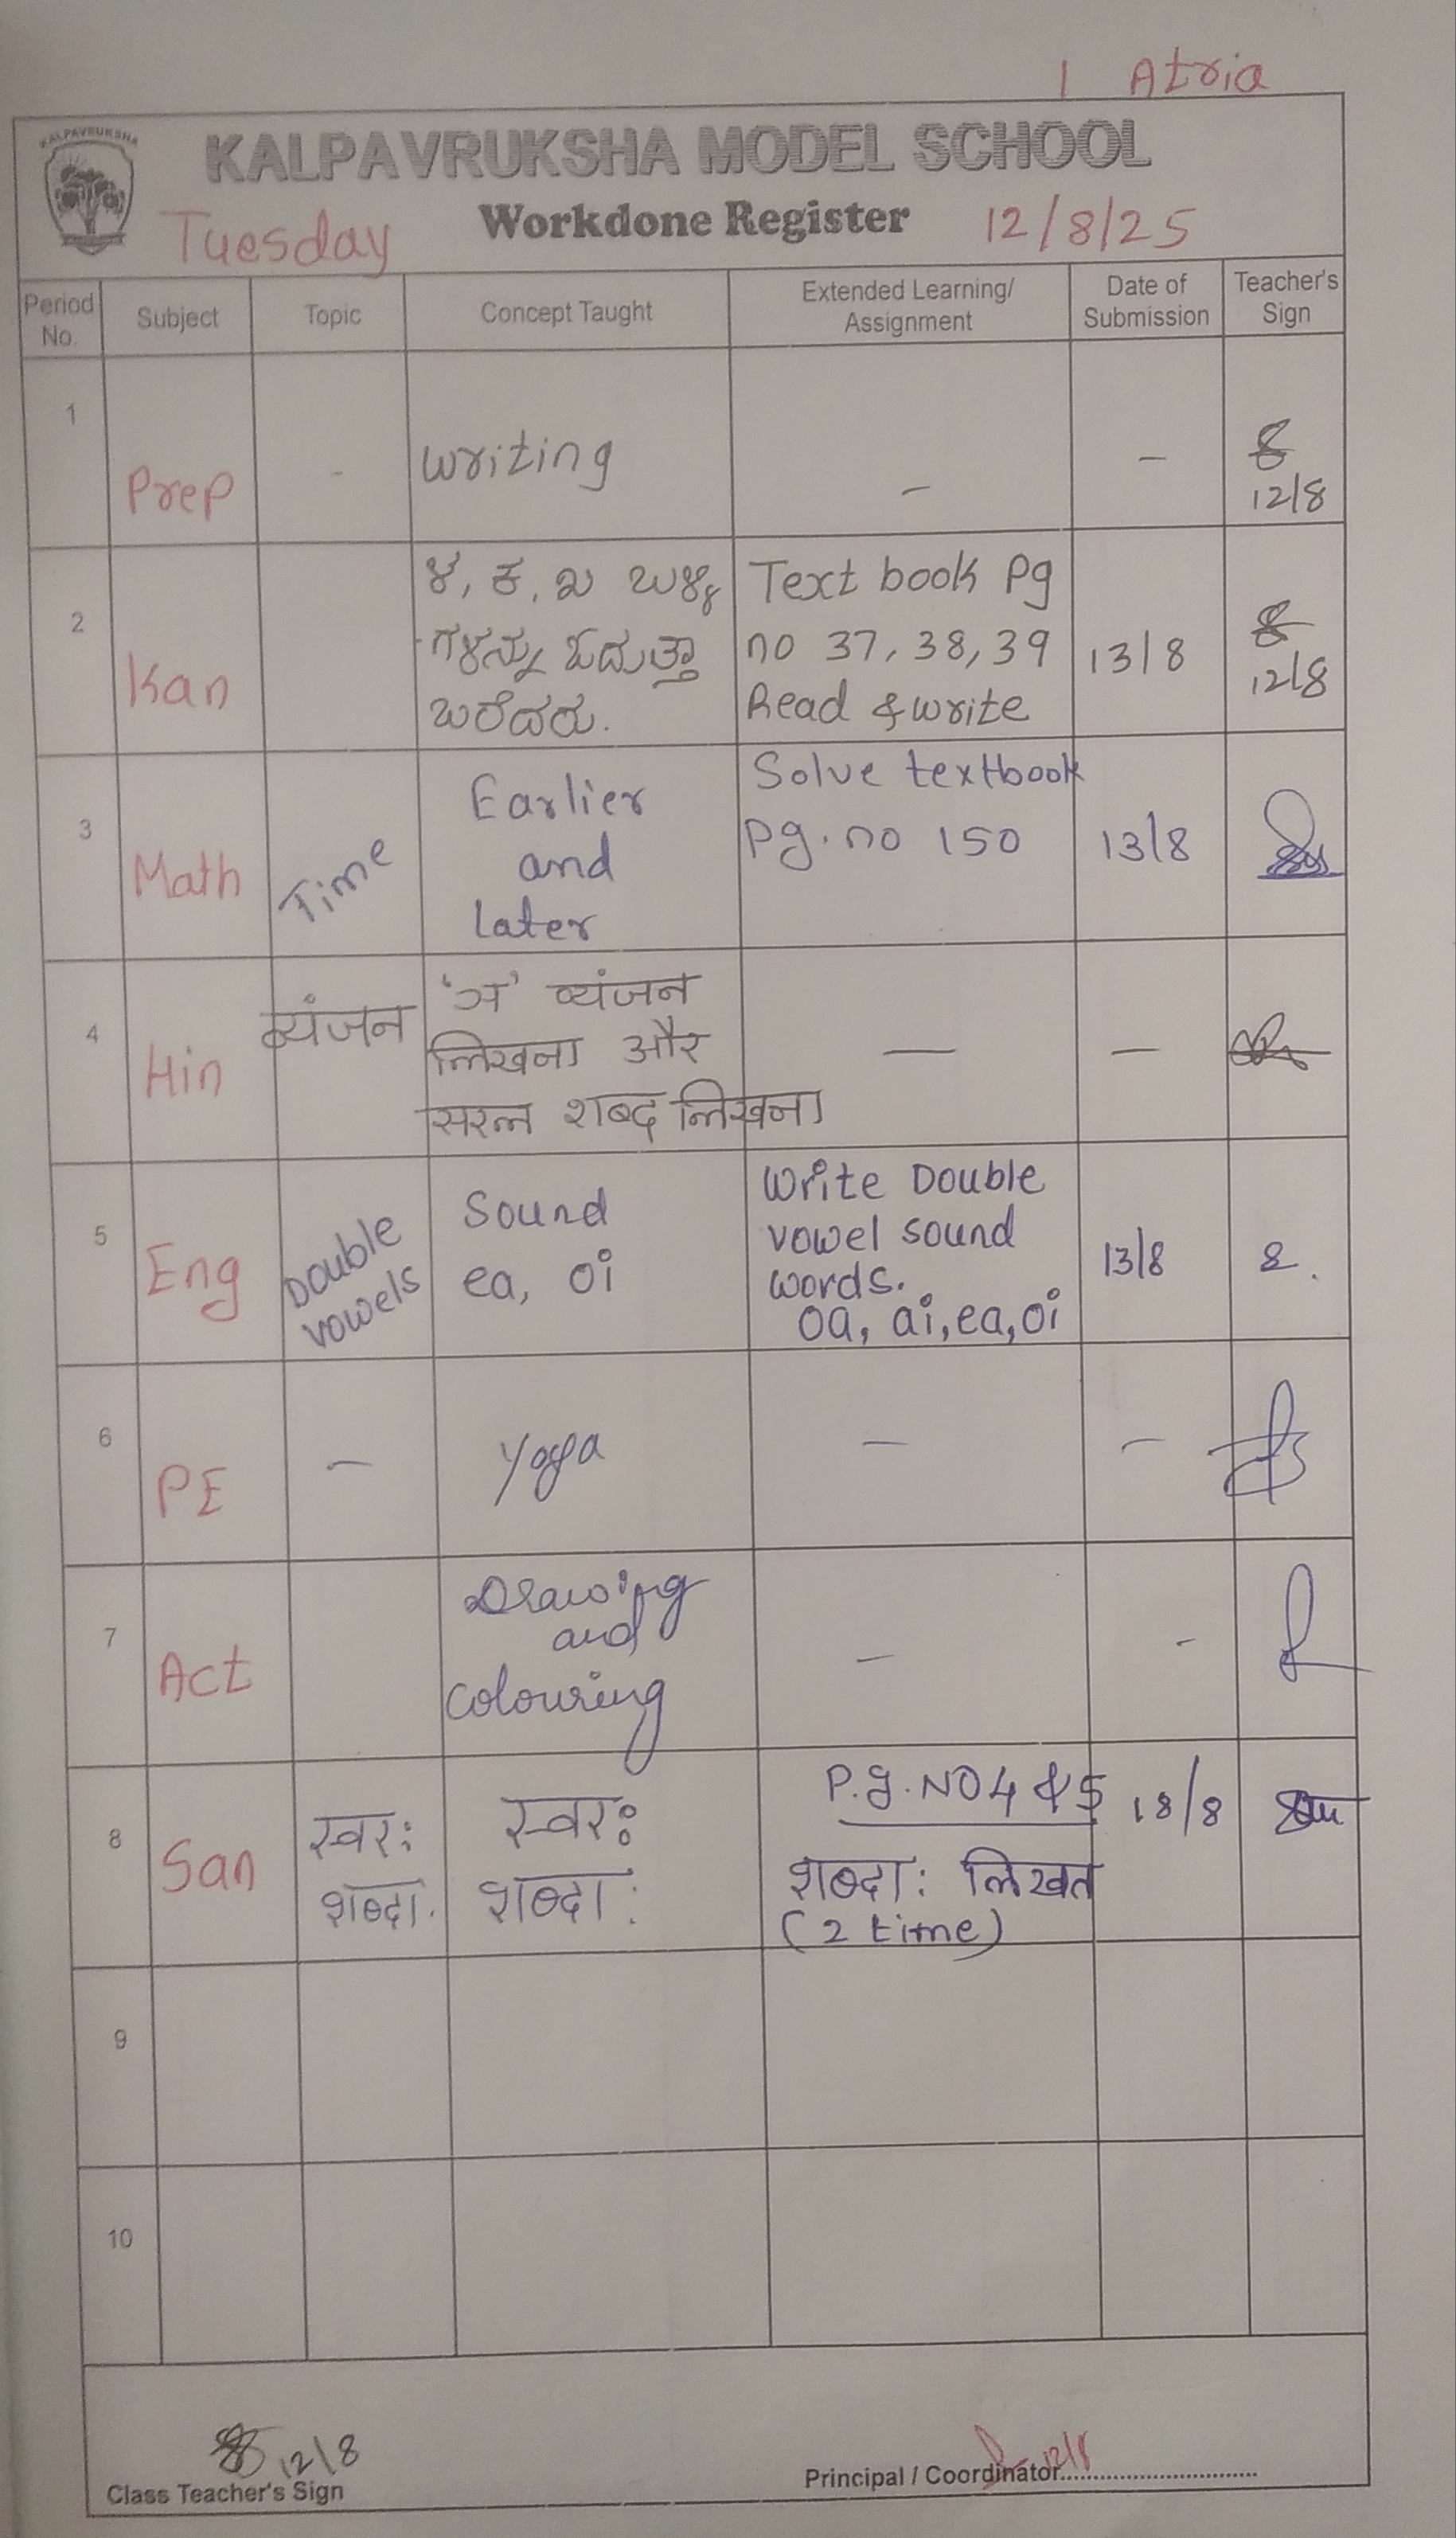 1 Atria
KALPAVRUKSHA
KALPAVRUKSHA MODEL SCHOOL
Tuesday Workdone Register 12/8/25
Period No. Subject Topic Concept Taught Extended Learning/ Assignment Date of Submission Teacher's Sign
1 Prep - writing - - 12/8
2 Kan ಳ, ಕ, ಖ
ಗಳನ್ನು ಓದುತ್ತಾ
ಬರೆದರು.
Text book Pg
no 37, 38, 39
Read & write
13/8 12/8
3 Math Time Earlier
and
later
Solve textbook
Pg. no 150
13/8
4 Hin व्यंजन 'ञ' व्यंजन
लिखना और
सरल शब्द लिखना
— —
5 Eng Double
vowels
Sound
ea, oi
Write Double
vowel sound
words.
oa, ai, ea, oi
13/8
6 PE — Yoga — —
7 Act Drawing
and
colouring
— -
8 San स्वरः
शब्दा.
स्वरः
शब्दाः
P.g. NO 4 & 5
शब्दाः लिखत
(2 time)
18/8
9
10
12/8
Class Teacher's Sign
12/8
Principal / Coordinator